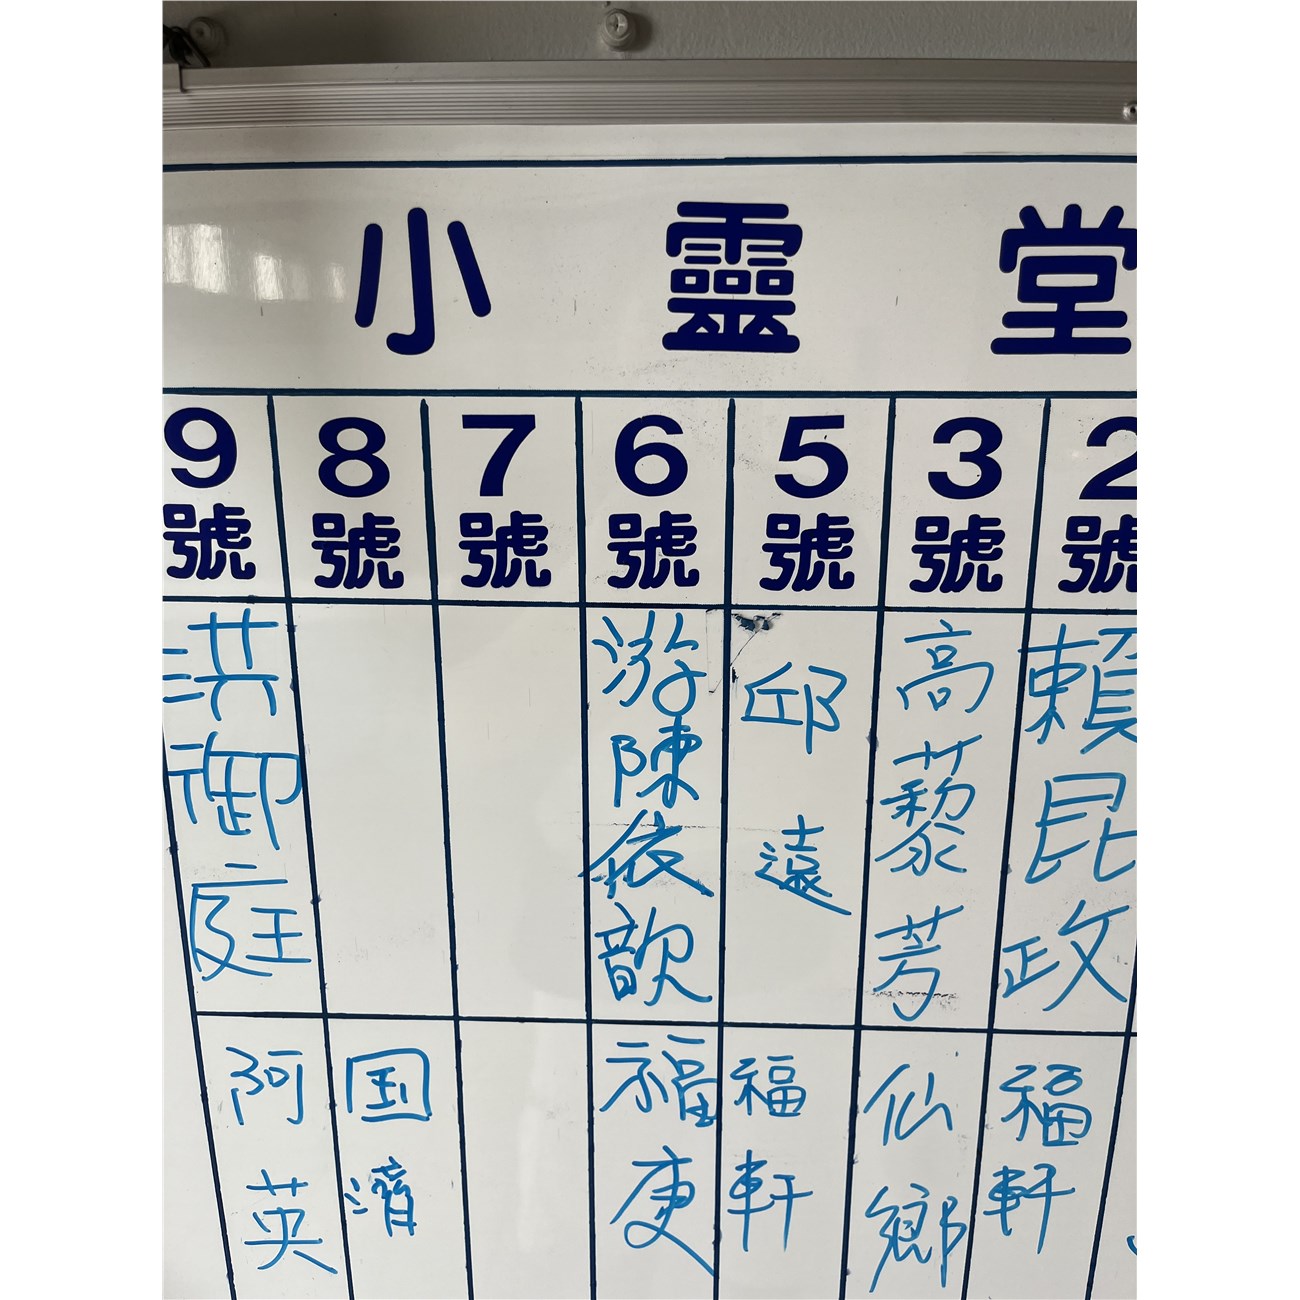 小靈堂
9號 8號 7號 6號 5號 3號 2號
洪御庭 游陳依歆 邱遠 高藜芳 賴昆政
阿英 国濟 福康 福軒 仙鄉 福軒